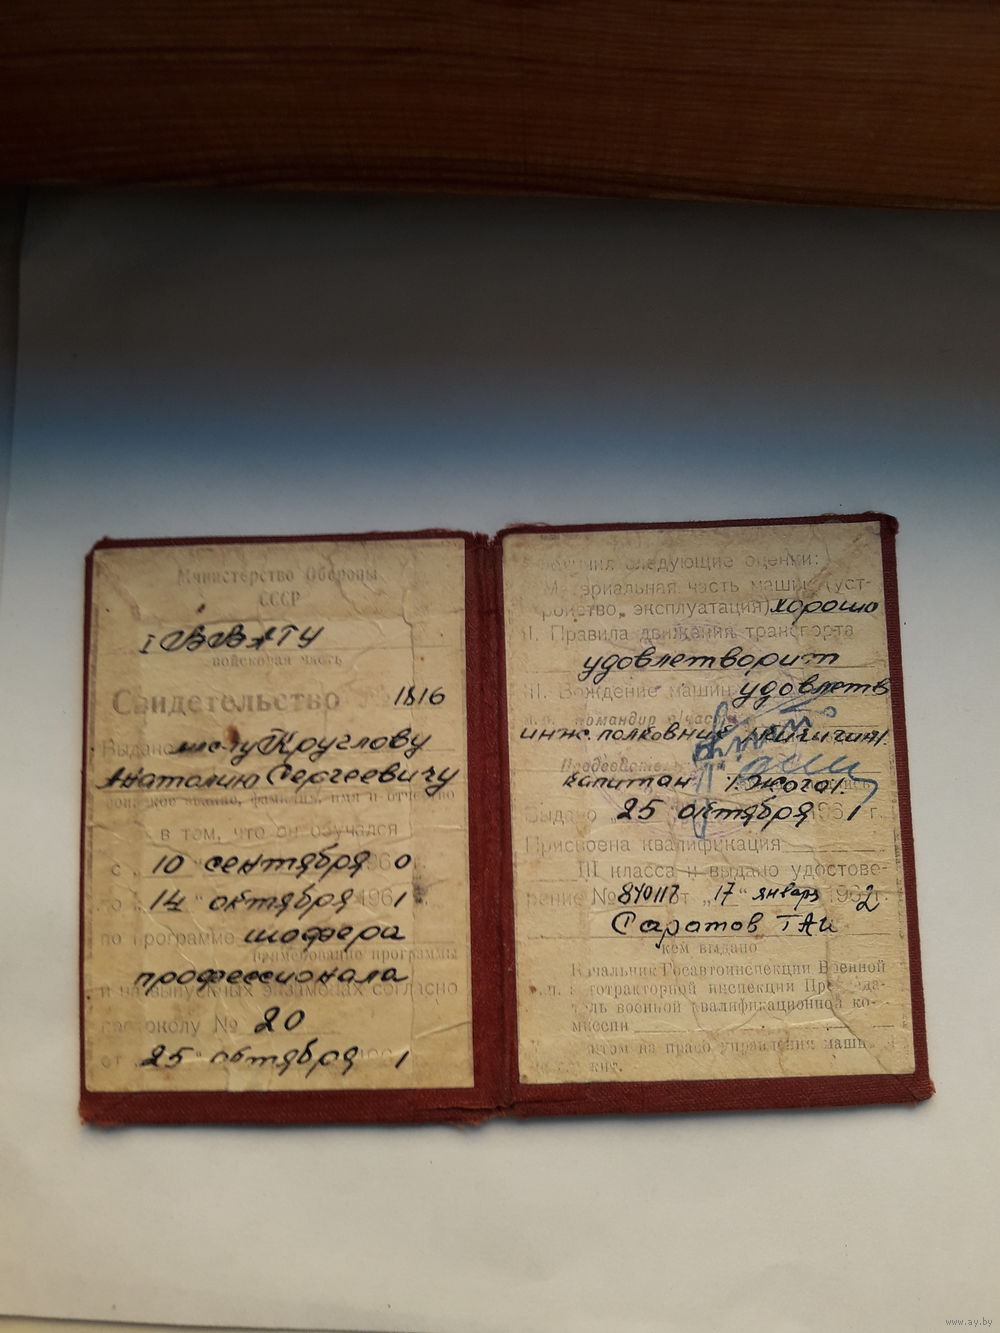 Министерство Обороны
СССР
I ВВАТУ
войсковая часть
Свидетельство 1816
Выдано Круглову
Анатолию Сергеевичу
звание, фамилия, имя и отчество
в том, что он обучался
с 10 сентября 1960 г.
по 14 октября 1961 г.
по программе шофера
наименование программы
профессионала
и на выпускных экзаменах согласно
протоколу № 20
от 25 октября 1961
получил следующие оценки:
I. Материальная часть машин (уст-
ройство, эксплуатация) хорошо
II. Правила движения транспорта
удовлетворит
III. Вождение машин удовлетв
м.п. Командир в/части
инж. полковник
Председатель
капитан
Выдано 25 октября 1961 г.
Присвоена квалификация
III класса и выдано удостове-
рение № 840117 от „17" января 1962 г.
Саратов ГАИ
кем выдано
Начальник Госавтоинспекции Военной
м.п. автотракторной инспекции Председа-
тель военной квалификационной ко-
миссии
на право управления машиной
www.ay.by